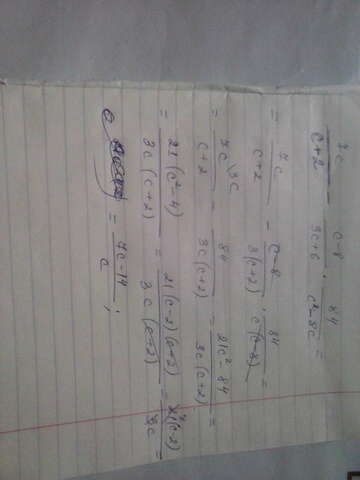 7c/(c+2) - (c-8)/(3c+6) · 84/(c²-8c) =
= 7c/(c+2) - (c-8)/(3(c+2)) · 84/(c(c-8)) =
= 7c^{\3c}/(c+2) - 84/(3c(c+2)) = (21c²-84)/(3c(c+2)) =
= 21(c²-4)/(3c(c+2)) = 21(c-2)(c+2)/(3c(c+2)) = 21(c-2)/(3c) =
= (7c-14)/c ;